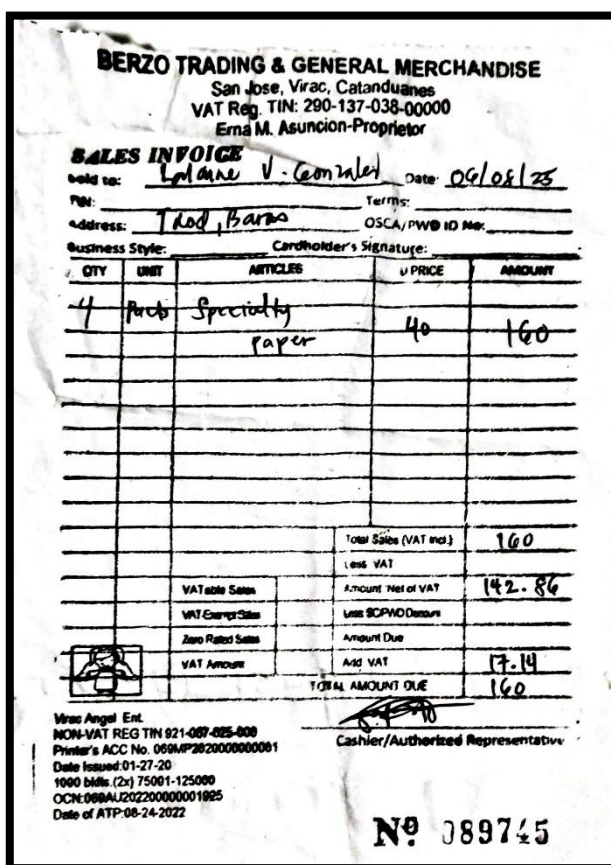 BERZO TRADING & GENERAL MERCHANDISE
San Jose, Virac, Catanduanes
VAT Reg. TIN: 290-137-038-00000
Erna M. Asuncion-Proprietor
SALES INVOICE
Sold to: V. Gonzales Date: 06/08/25
TIN: Terms:
Address: Tilod, Baras OSCA/PWD ID No.:
Business Style: Cardholder's Signature:
QTY UNIT ARTICLES U PRICE AMOUNT
4 Packs Specialty
paper 40 160
Total Sales (VAT Incl.) 160
Less VAT
VATable Sales Amount Net of VAT 142.86
VAT-Exempt Sales Less SC/PWD Discount
Zero Rated Sales Amount Due
VAT Amount Add VAT 17.14
TOTAL AMOUNT DUE 160
Virac Angel Ent.
NON-VAT REG TIN 921-067-025-000
Cashier/Authorized Representative
Printer's ACC No. 069MP2020000000001
Date Issued:01-27-20
1000 bklts.(2x) 75001-125000
OCN:069AU202200000001925
Date of ATP:08-24-2022
Nº 089745